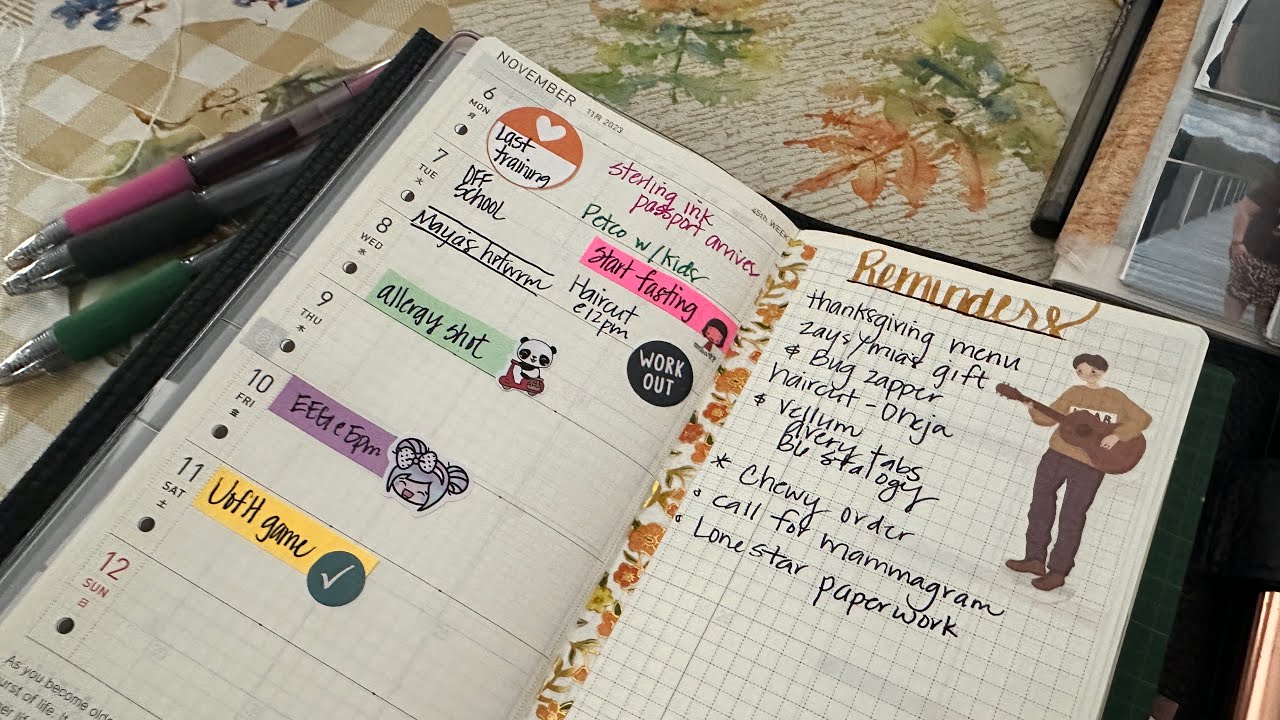 NOVEMBER 11月 2023
45th WEEK
6
MON
月
Last
training
sterling ink
passport arrives
7
TUE
火
OFF
School
Petco w/kids
8
WED
水
Maya's hrtwrm
start fasting
Haircut
@ 12pm
9
THU
木
allergy shot
WORK
OUT
10
FRI
金
EEG @ 5pm
11
SAT
土
UofH game
12
SUN
日
As you become olde
urst of life. It
her life
Reminders
thanksgiving menu
zays/mias gift
& Bug zapper
haircut - Oneja
vellum
avery tabs
Bu stalogy
* Chewy order
call for mammagram
Lonestar paperwork